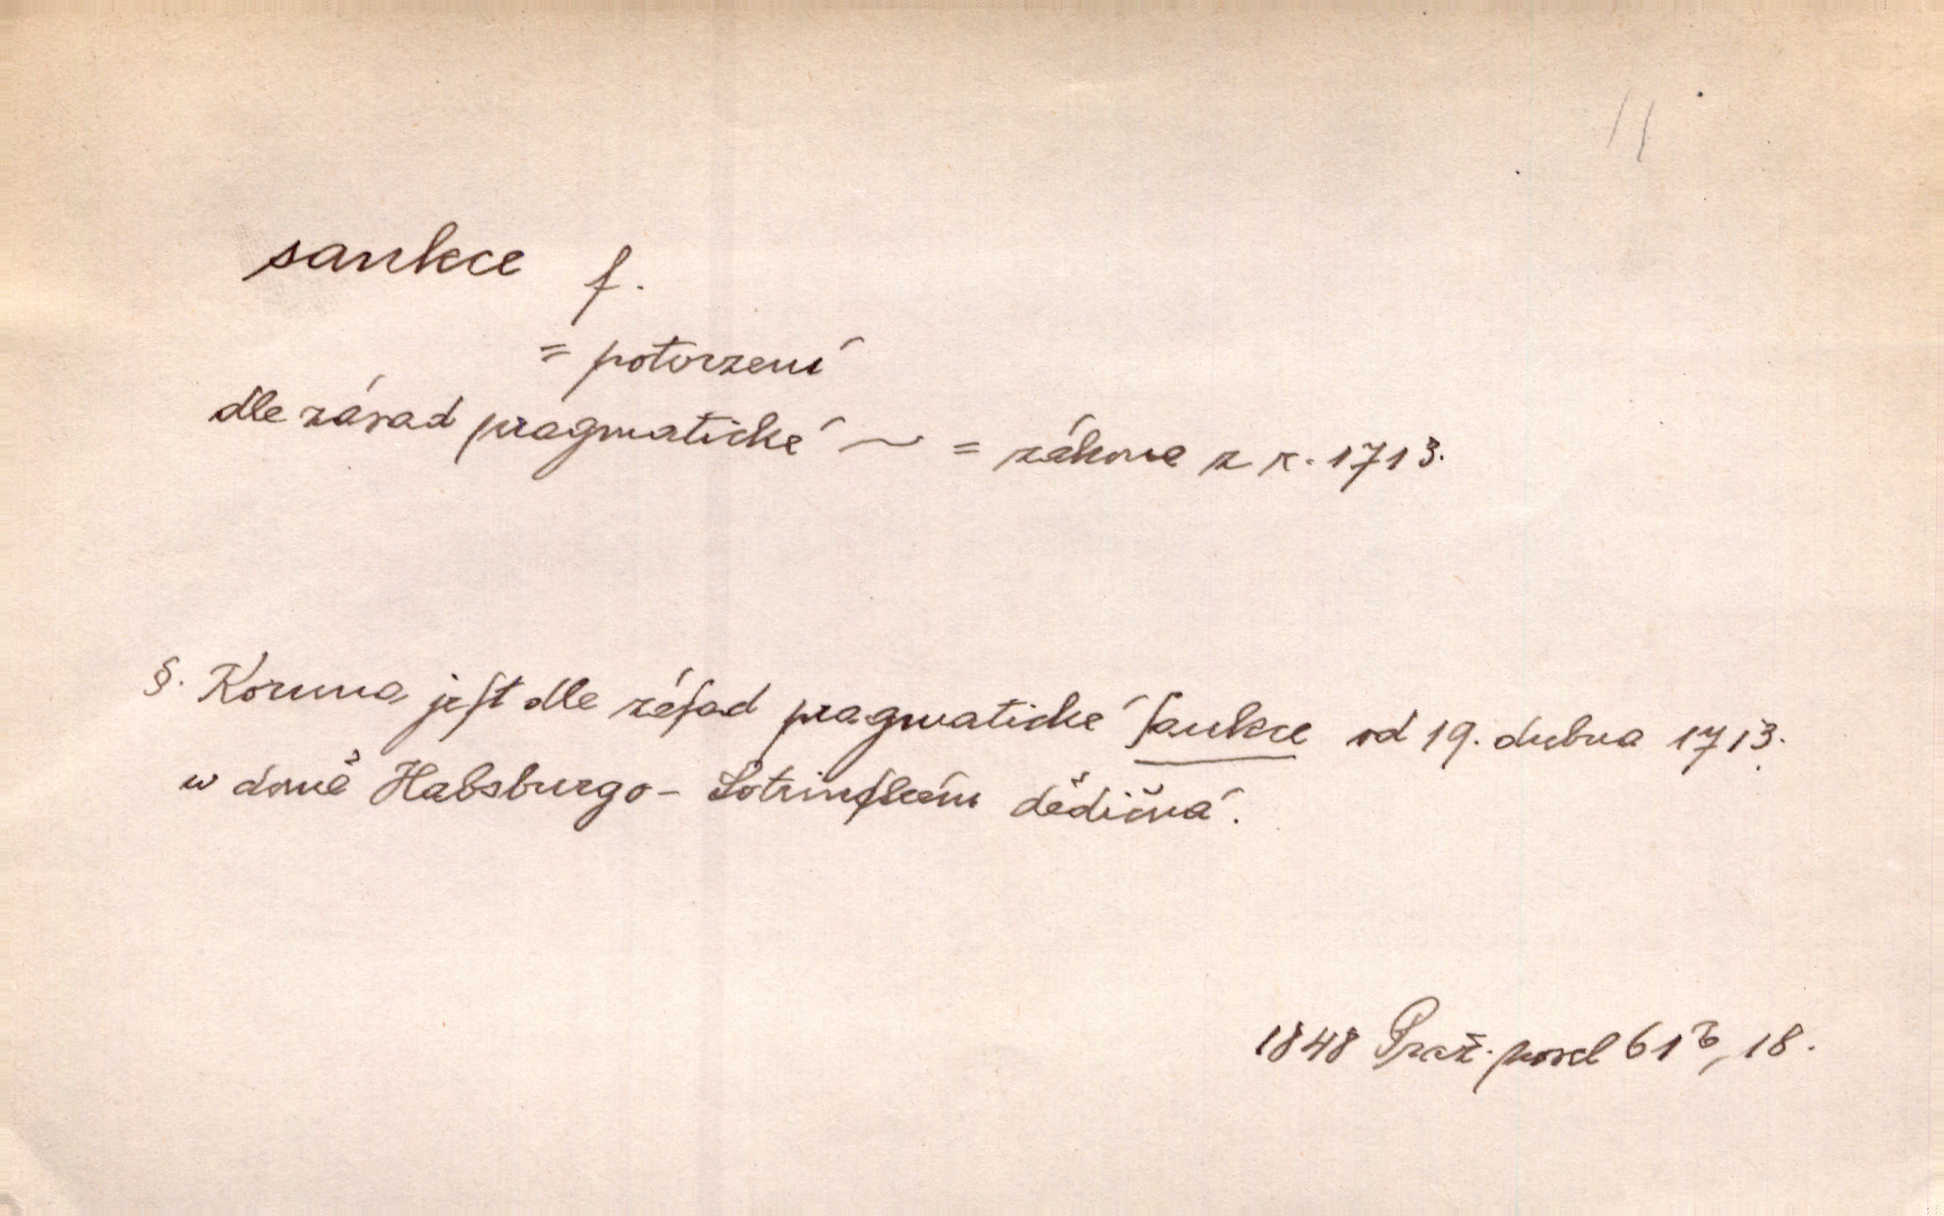 sankce f.
= potvrzení
dle zásad pragmatické ~ = zákona z r. 1713.
§. Koruna jeſt dle záſad pragmatické ſankce od 19. dubna 1713.
w domě Habsburgo-Lotrinſkém dědičná.
1848 Praž. posel 61b, 18.